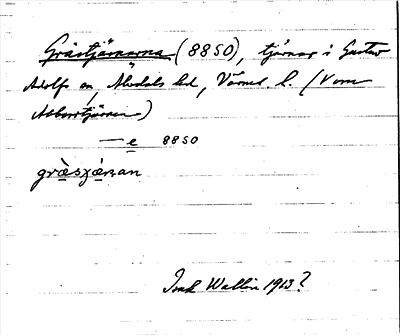 Grästjärnarna (8850), tjärnar i Gustav
Adolfs sn, Älvdals hd, Värml l. (Vom
Abborrtjärnen)
— e 8850
gräsʒánan
Isak Wallin 1913?